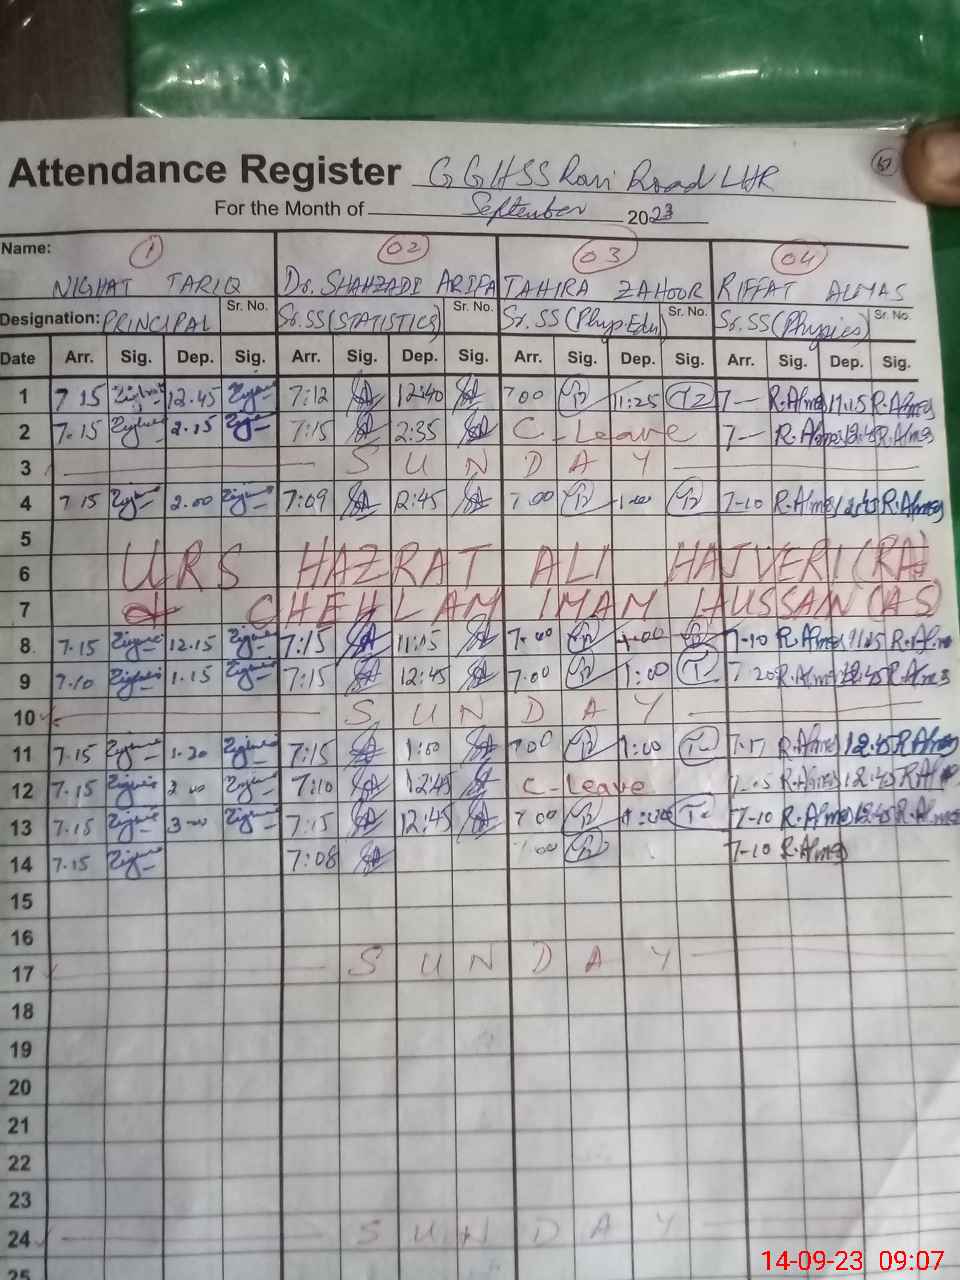 Attendance Register GGHSS Ravi Road LHR
For the Month of September 2023
Name: 1 02 03 04
NIGHAT TARIQ Dr. SHAHZADI ARIFA TAHIRA ZAHOOR RIFFAT ALMAS
Designation: PRINCIPAL Sr. No. Sr.SS(STATISTICS) Sr. No. Sr.SS(Phy.Edu) Sr. No. Sr.SS(Physics) Sr. No.
Date Arr. Sig. Dep. Sig. Arr. Sig. Dep. Sig. Arr. Sig. Dep. Sig. Arr. Sig. Dep. Sig.
1 7 15 12.45 7:12 12:40 700 11:25 TZ 7— R.Almas 11.15 R.Almas
2 7.15 2.15 7:15 2:35 C-Leave 7— R.Almas 12.45 R.Almas
3 SUNDAY
4 7 15 2.00 7:09 2:45 7.00 1.00 7-10 R.Almas 12.45 R.Almas
5
6 URS HAZRAT ALI HAJVERI (RA)
7 & CHEHLAM IMAM HUSSAIN (AS)
8 7.15 12.15 7:15 11:15 7.00 1.00 7-10 R.Almas 11.15 R.Almas
9 7.10 1.15 7:15 12:45 7.00 1:00 7 20 R.Almas 12.45 R.Almas
10 SUNDAY
11 7.15 1.20 7:15 1:00 700 1:00 7.17 R.Almas 12.45 R.Almas
12 7.15 7:10 12:45 C-Leave R.Almas 12.45 R.Almas
13 7.15 3.00 7:15 12:45 700 7-10 R.Almas 12.45 R.Almas
14 7.15 7:08 7.00 7-10 R.Almas
15
16
17 SUNDAY
18
19
20
21
22
23
24 SUNDAY
25
14-09-23 09:07